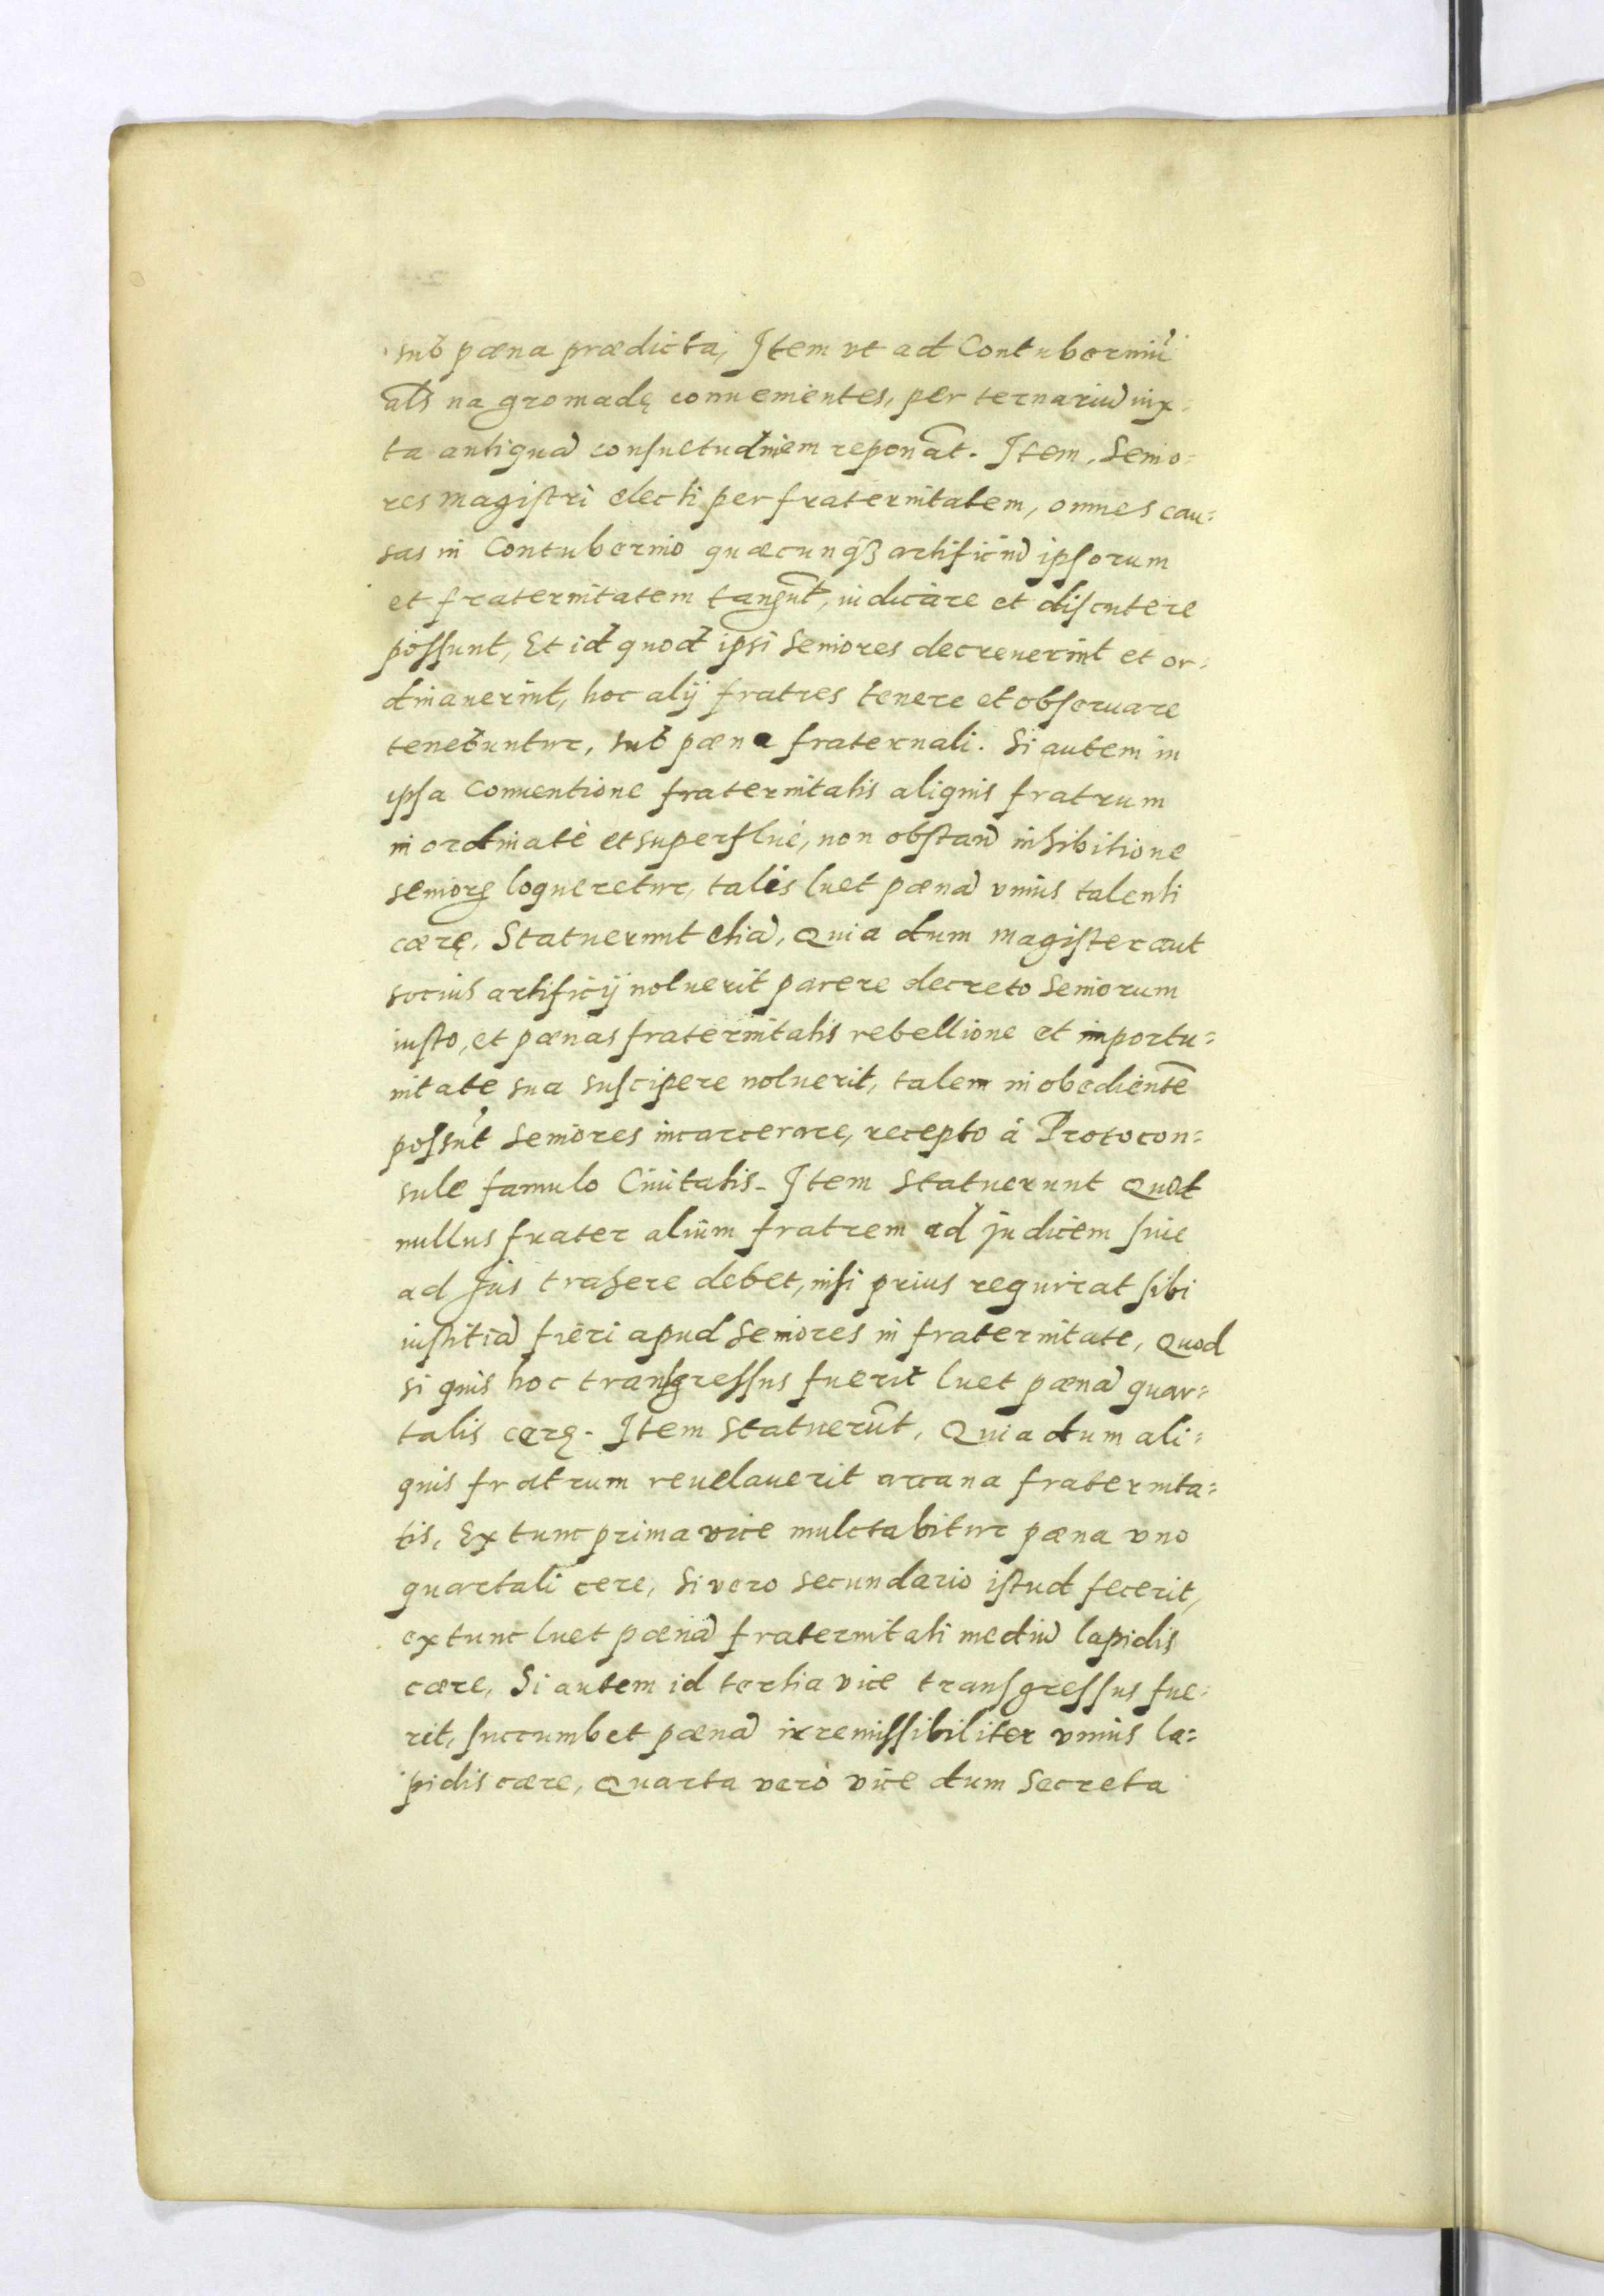 sub pæna prædicta, Item vt ad Contuberniũ
als na gromadę conuenientes, per ternariũ iux=
ta antiquã consuetudinem reponãt. Item, Senio=
res magistri electi per fraternitatem, omnes cau=
sas in Contubernio quæcunqꝫ artificiũ ipsorum
et fraternitatem tangũt, iudicare et discutere
possunt, Et id quod ipsi Seniores decreuerint et or=
dinauerint, hoc alij fratres tenere et obseruare
tenebuntur, sub pæna fraternali. Si autem in
ipsa Conuentione fraternitatis aliquis fratrum
in ordinatè et superfluè, non obstan̄ inhibitione
seniorꝝ loqueretur, talis luet pænã vnius talenti
cæræ, Statuerunt etiã, Quia dum magister aut
socius artificij noluerit parere decreto Seniorum
iusto, et pænas fraternitatis rebellione et inportu=
nitate sua suscipere noluerit, talem in obedientẽ
possũt Seniores incarcerare, recepto à Protocon=
sule famulo Ciuitatis. Item Statuerunt Quod
nullus frater alium fratrem ad Judicem siue
ad Jus trahere debet, nisi prius requirat sibi
iustitiã fieri apud Seniores in fraternitate, Quod
si quis hoc transgressus fuerit luet pænã quar=
talis ceręͅ. Item Statuerũt, Quia dum ali=
quis fratrum reuelauerit arcana fraternita=
tis, Ex tunc prima vice mulctabitur pæna vno
quartali cere, Si vero secundario istud fecerit,
extunc luet pænã fraternitati mediũ lapidis
cære, Si autem id tertia vice transgressus fue=
rit, succumbet pænã irremissibiliter vnius la=
pidis cære, Quarta verò vice dum Secreta